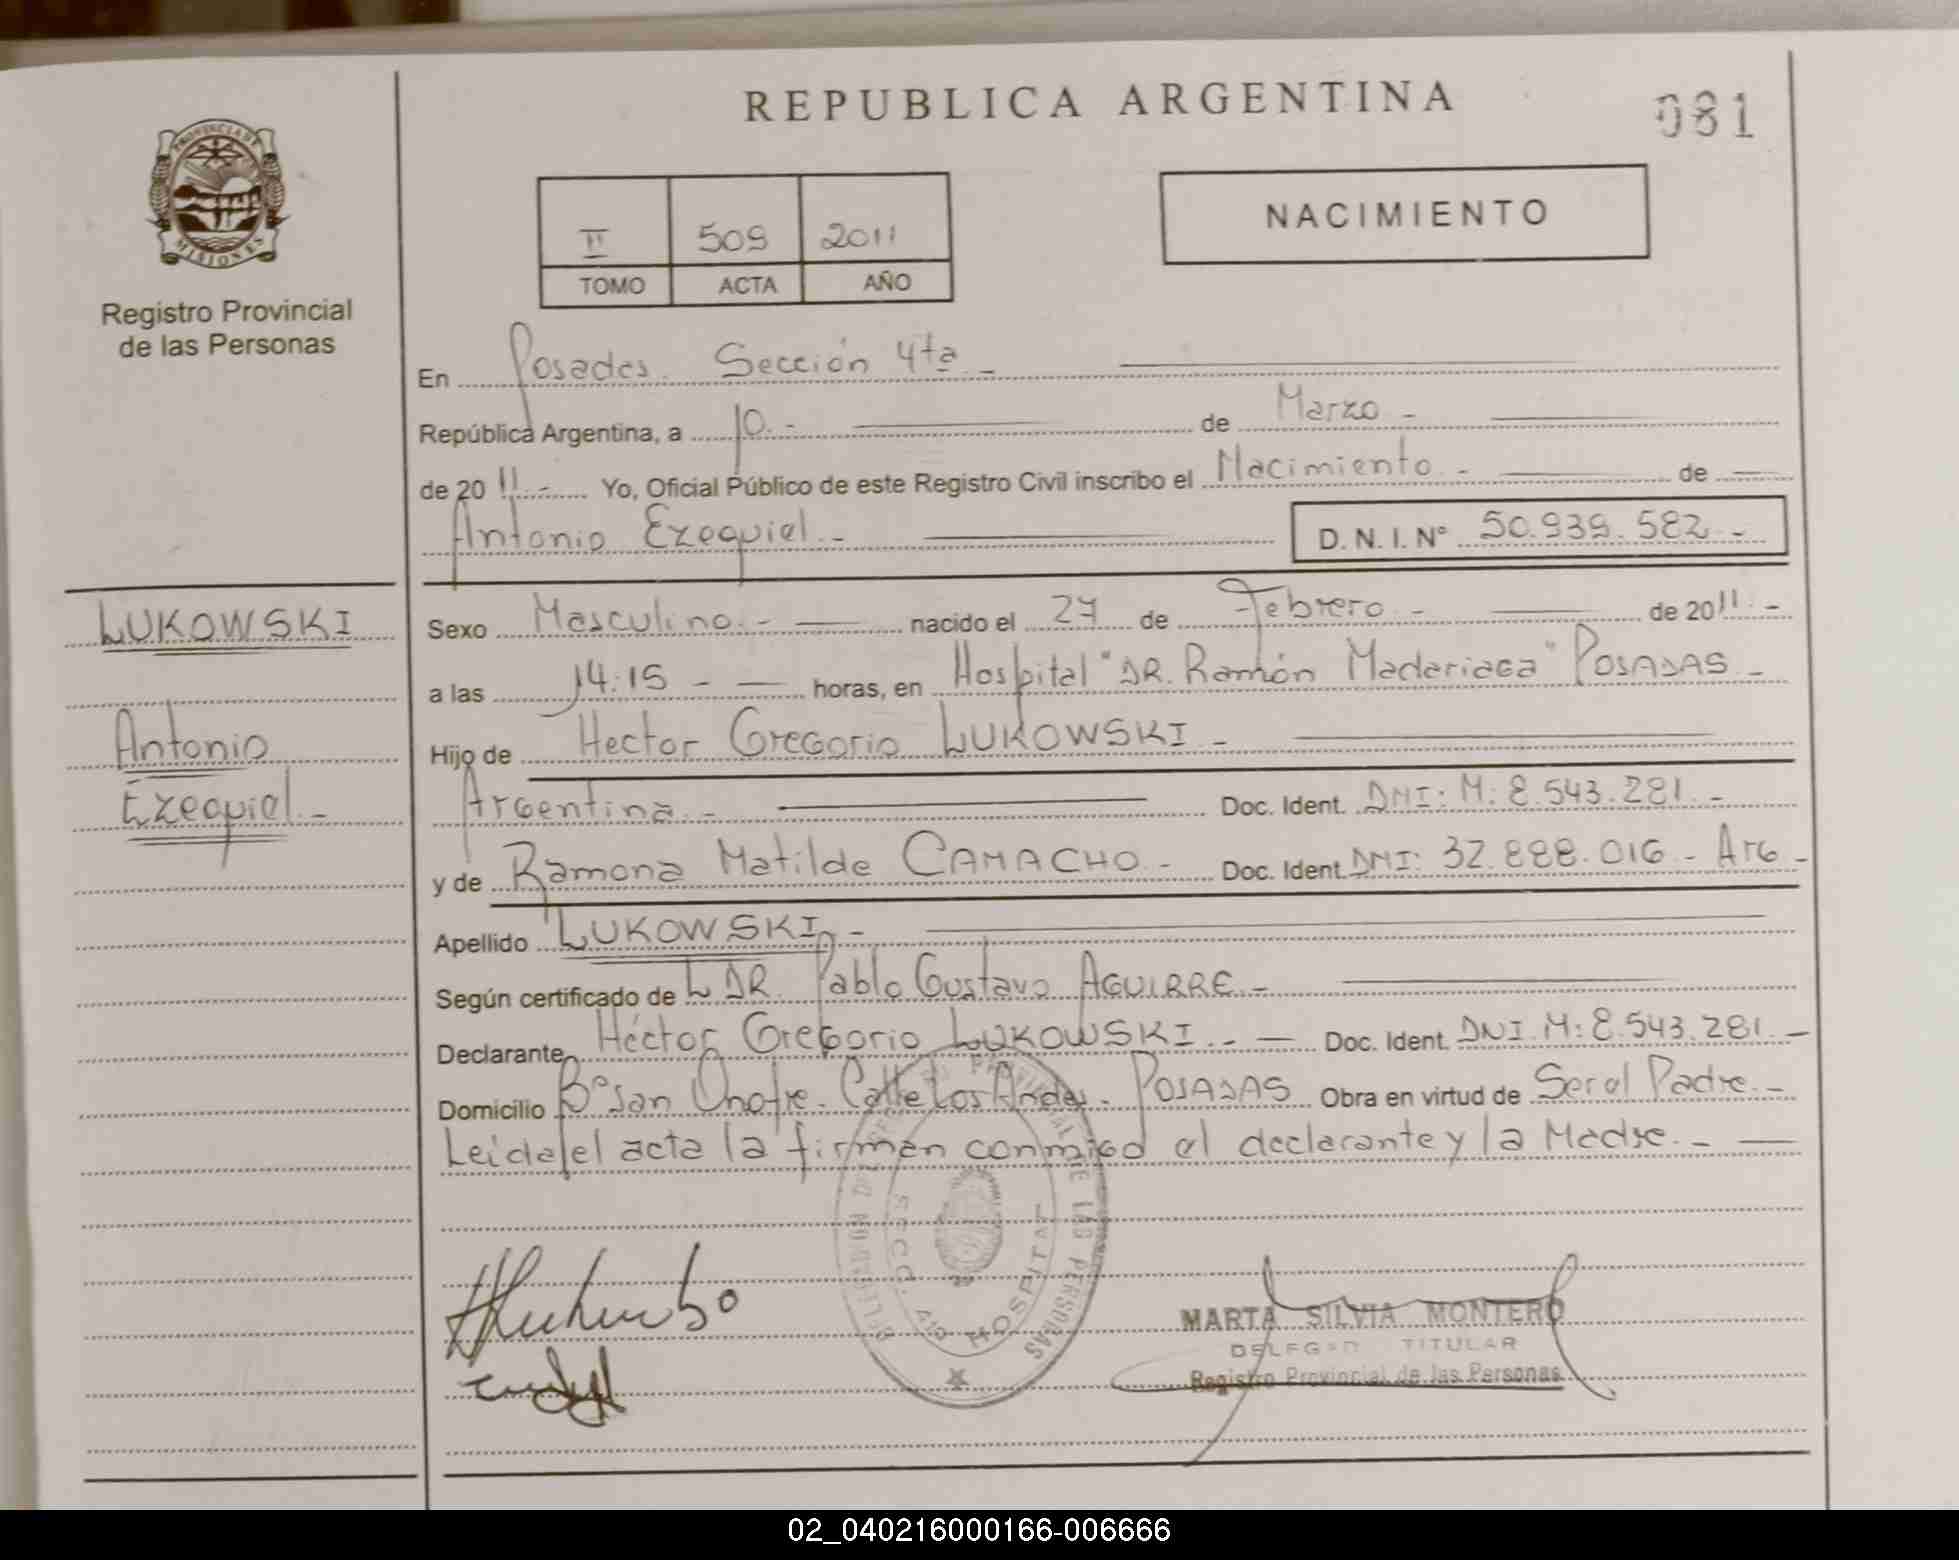 REPUBLICA ARGENTINA
081
PROVINCIA DE
MISIONES
Registro Provincial
de las Personas
II 509 2011
TOMO ACTA AÑO
NACIMIENTO
En Posadas. Sección 4ta.-
República Argentina, a 10.- de Marzo -
de 20 11.- Yo, Oficial Público de este Registro Civil inscribo el Nacimiento.- de
Antonio Ezequiel.- D.N.I. N° 50.939.582.-
LUKOWSKI
Antonio
Ezequiel.-
Sexo Masculino.- nacido el 27 de Febrero.- de 2011.-
a las 14:15 - - horas, en Hospital "DR. Ramón Madariaga" POSADAS.-
Hijo de Hector Gregorio LUKOWSKI -
Argentina.- Doc. Ident. DNI: M: 8.543.281.-
y de Ramona Matilde CAMACHO.- Doc. Ident. DNI: 32.888.016 - Arg -
Apellido LUKOWSKI.-
Según certificado de DR. Pablo Gustavo AGUIRRE.-
Declarante Héctor Gregorio LUKOWSKI.- Doc. Ident. DNI. M: 8.543.281.-
Domicilio B° San Onofre. Calle Los Andes. POSADAS Obra en virtud de Ser el Padre.-
Leida el acta la firman conmigo el declarante y la Madre.-
PROVINCIAL DE LAS PERSONAS
SECC. 4ta HOSPITAL
MARTA SILVIA MONTERO
TITULAR
Registro Provincial de las Personas
02_040216000166-006666